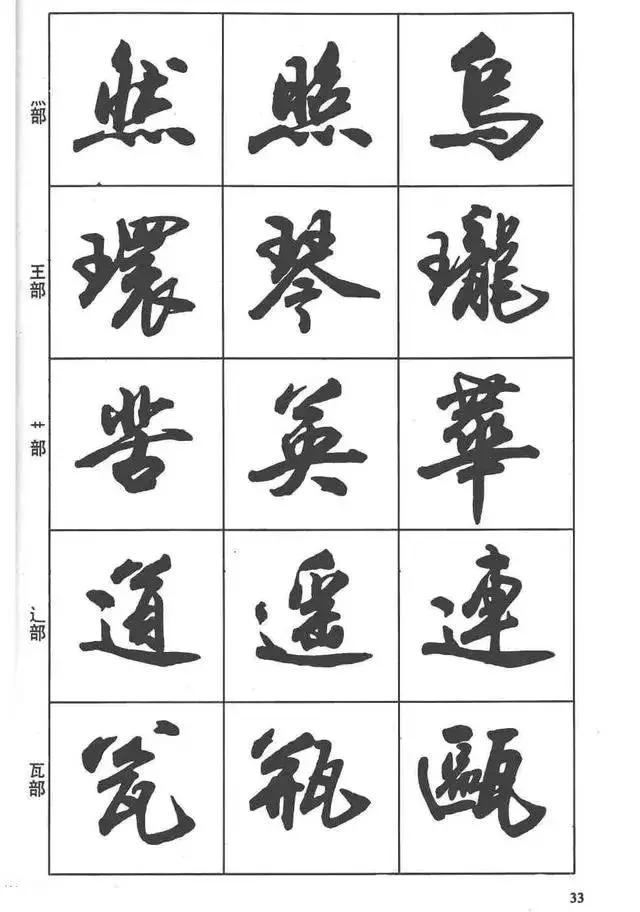 灬部 然 照 烏
王部 環 琴 瓏
艹部 苦 英 華
辶部 道 遥 連
瓦部 瓮 瓶 甌
33